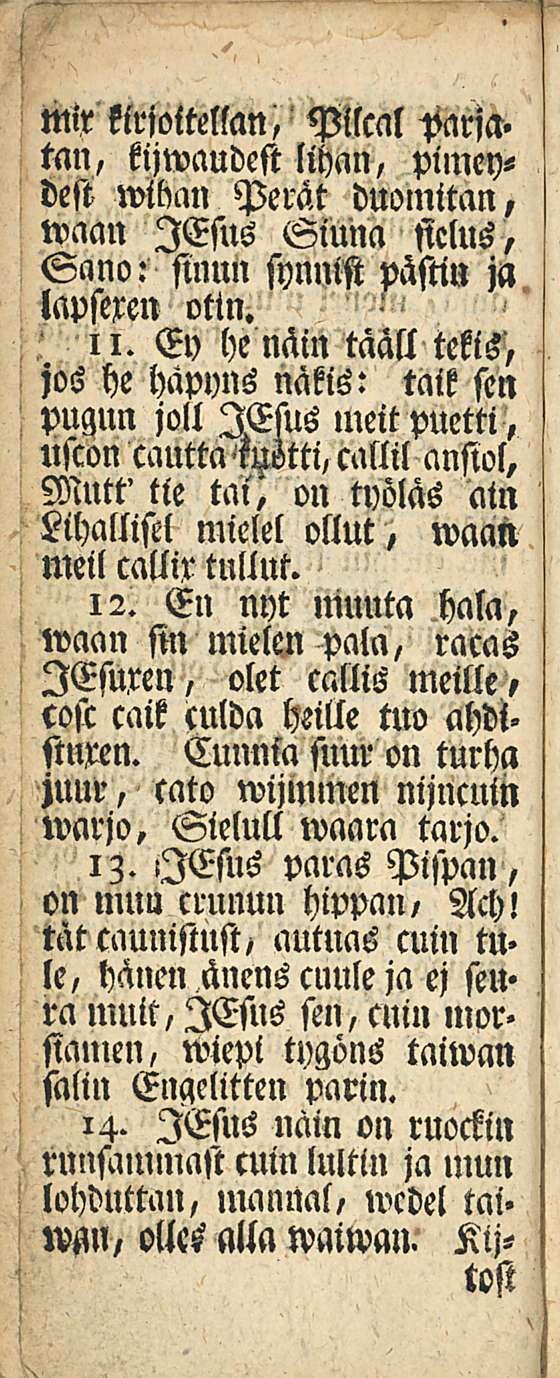 mix kirjoitellan, Pilcal parja-
tan, kijwaudest lihan, pimey-
dest wihan Perät duomitan,
waan JEsus Siuna sielus,
Sano: sinun synnist pästin ja
lapsexen otin.
11. Ey he näin tääll tekis,
jos he häpyns näkis: taik sen
pugun joll JEsus meit puetti,
uscon cautta tuotti, callil ansiol,
Mutt' tie tai, on työläs ain
Lihallisel mielel ollut, waan
meil callix tullut.
12. En nyt muuta hala,
waan sin mielen pala, racas
JEsuxen, olet callis meille,
cosc caik culda heille tuo ahdi-
stuxen. Cunnia suur on turha
juur, cato wijmmen nijncuin
warjo, Sielull waara tarjo.
13. JEsus paras Pispan,
on mun crunun hippan, Ach!
tät caunistust, autuas cuin tu-
le, hänen änens cuule ja ej seu-
ra muit, JEsus sen, cuin mor-
siamen, wiepi tygöns taiwan
salin Engelitten parin.
14. JEsus näin on ruockin
runsammast cuin lultin ja mun
lohduttan, mannal, wedel tai-
wan, olles alla waiwan. Kij-
tost